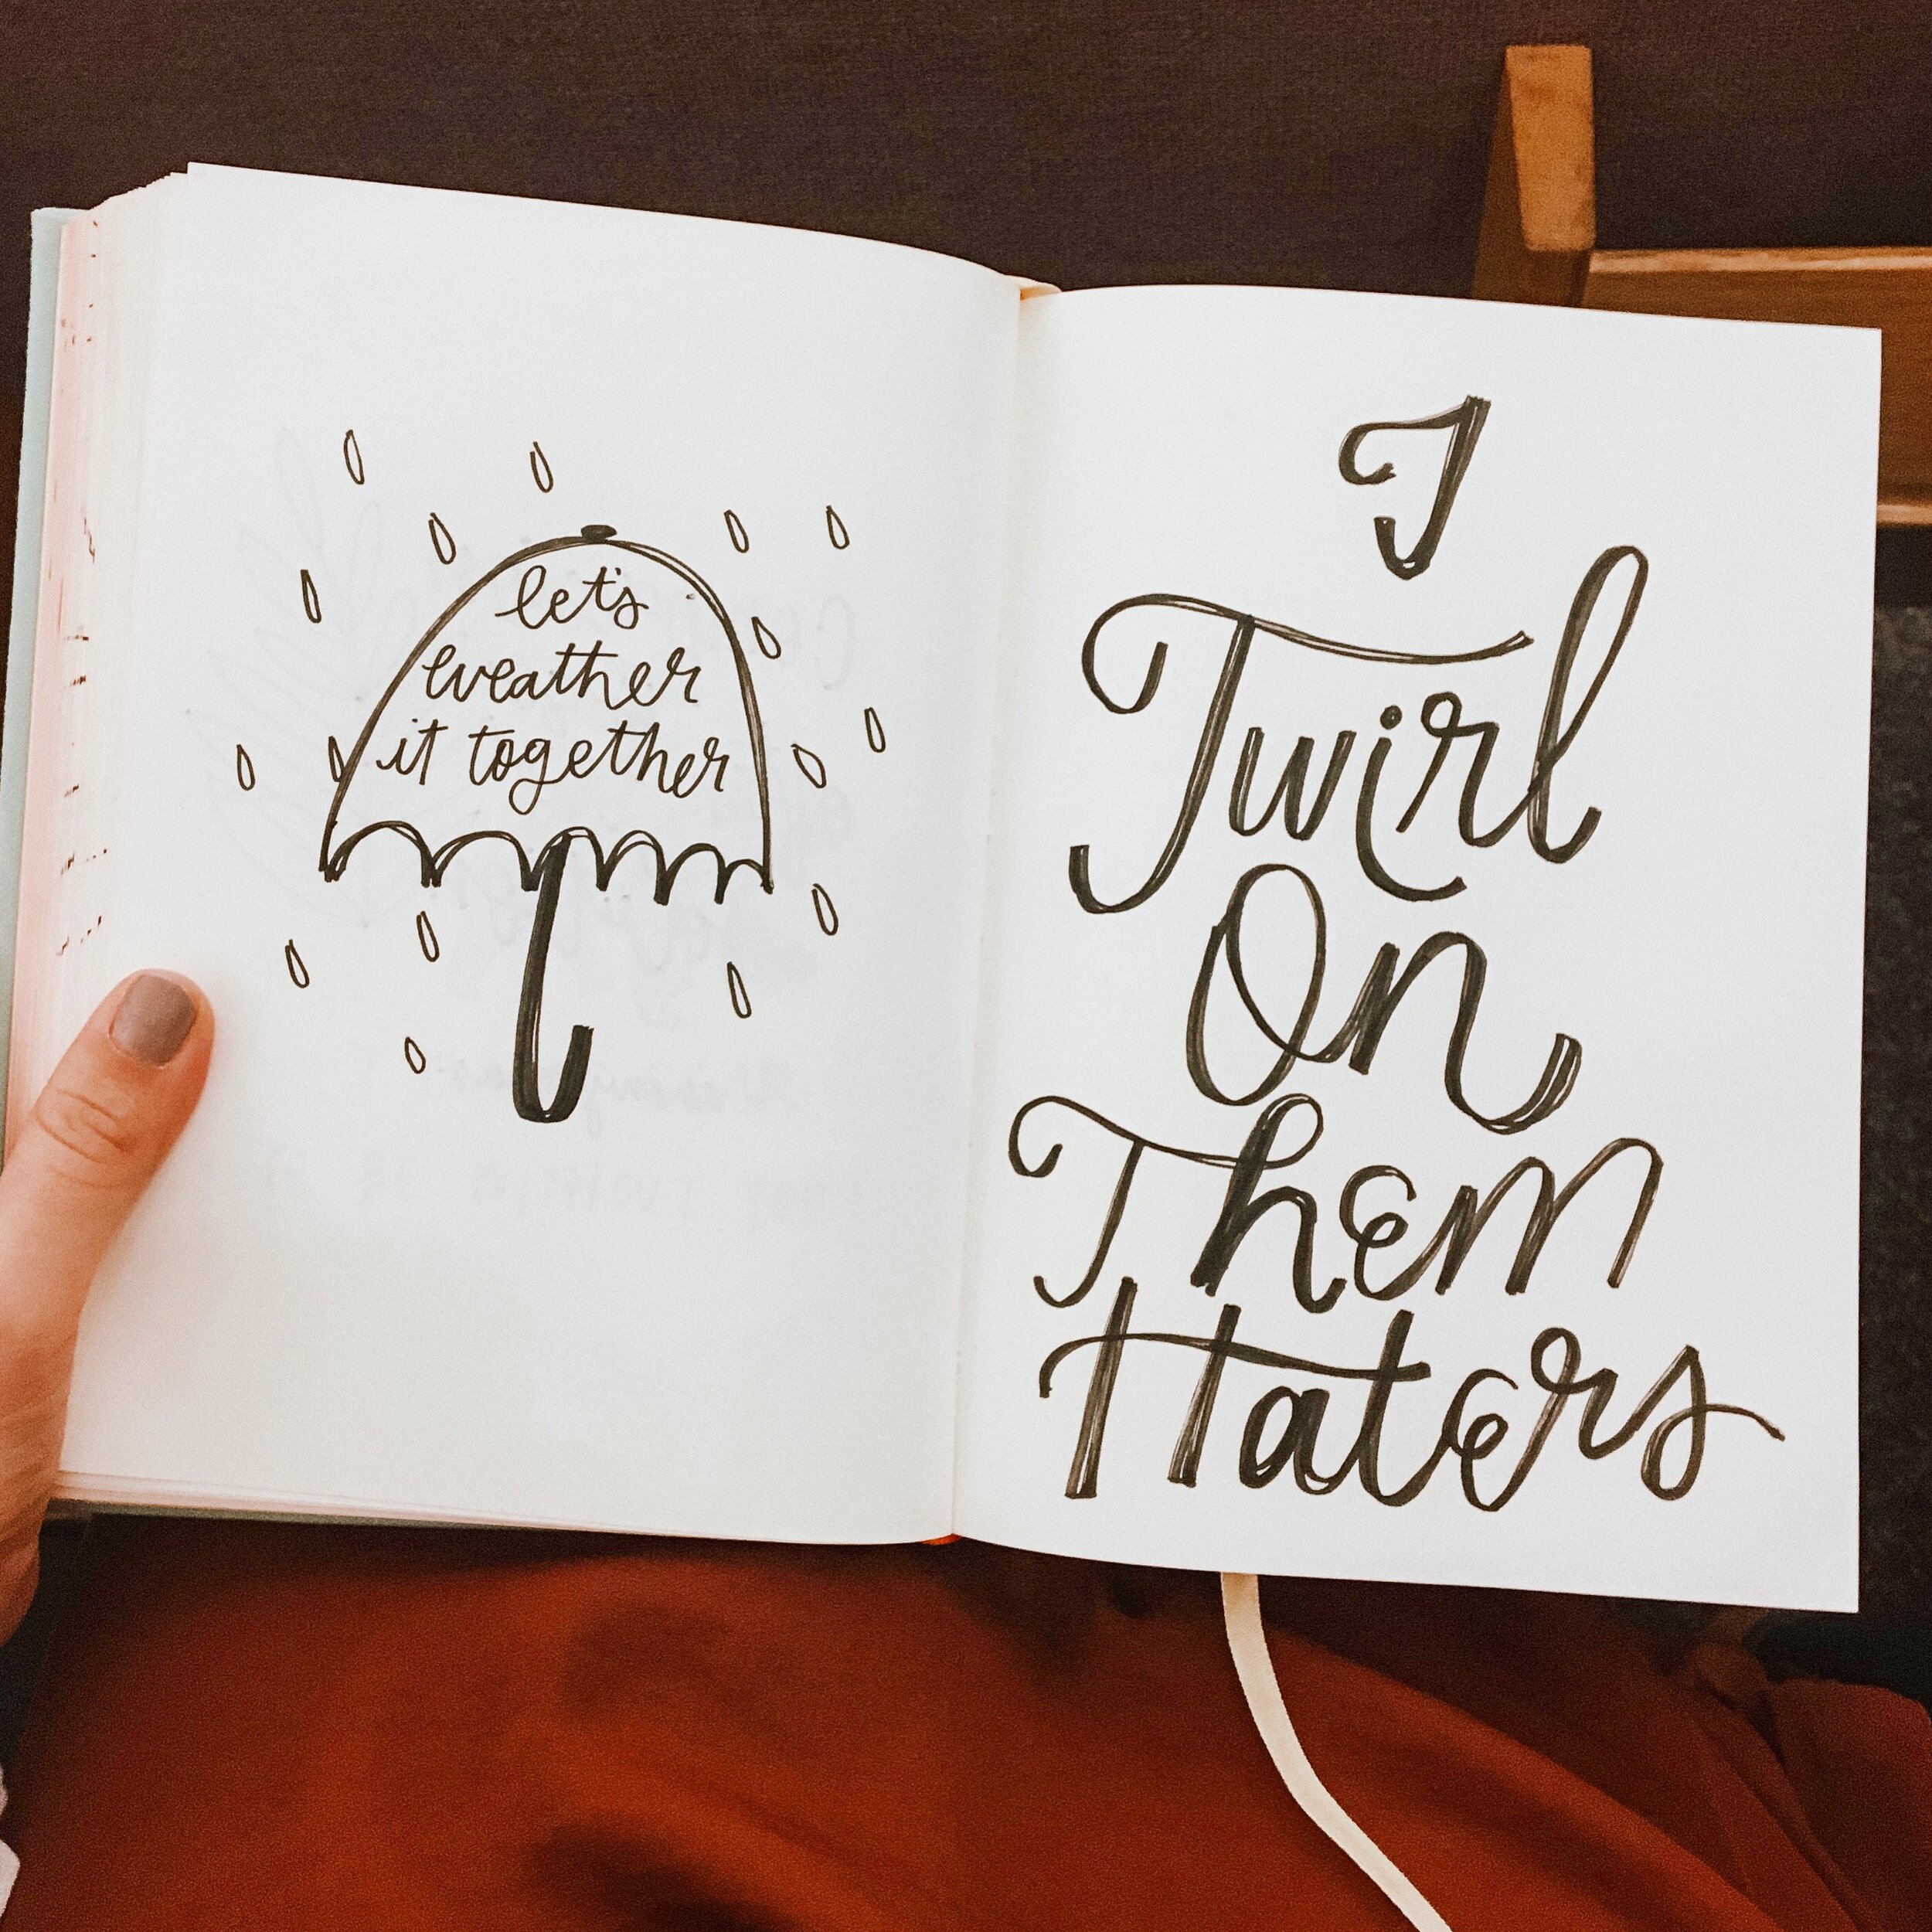 let's
weather
it together
I
Twirl
On
Them
Haters